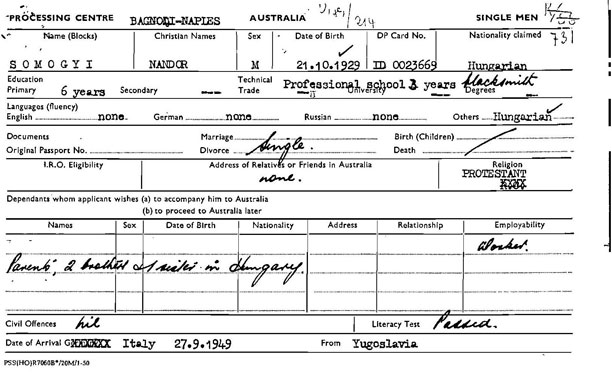 PROCESSING CENTRE BAGNOLI-NAPLES AUSTRALIA 214 SINGLE MEN
Name (Blocks) Christian Names Sex Date of Birth DP Card No. Nationality claimed 731
SOMOGYI NANDOR M 21.10.1929 ID 0023669 Hungarian
Education Technical Professional school 3 years blacksmith
Primary 6 years Secondary --- Trade --- University Degrees ---
Languages (fluency)
English none German none Russian none Others Hungarian
Documents Marriage Single. Birth (Children)
Original Passport No. Divorce Death
I.R.O. Eligibility Address of Relatives or Friends in Australia Religion
none. PROTESTANT
XXXX
Dependants whom applicant wishes (a) to accompany him to Australia
(b) to proceed to Australia later
Names Sex Date of Birth Nationality Address Relationship Employability
Worker.
Parents, 2 brothers 1 sister in Hungary.
Civil Offences nil Literacy Test Passed.
Date of Arrival GXXXXXX Italy 27.9.1949 From Yugoslavia
PSS(HO)R7060B*/20M/1-50